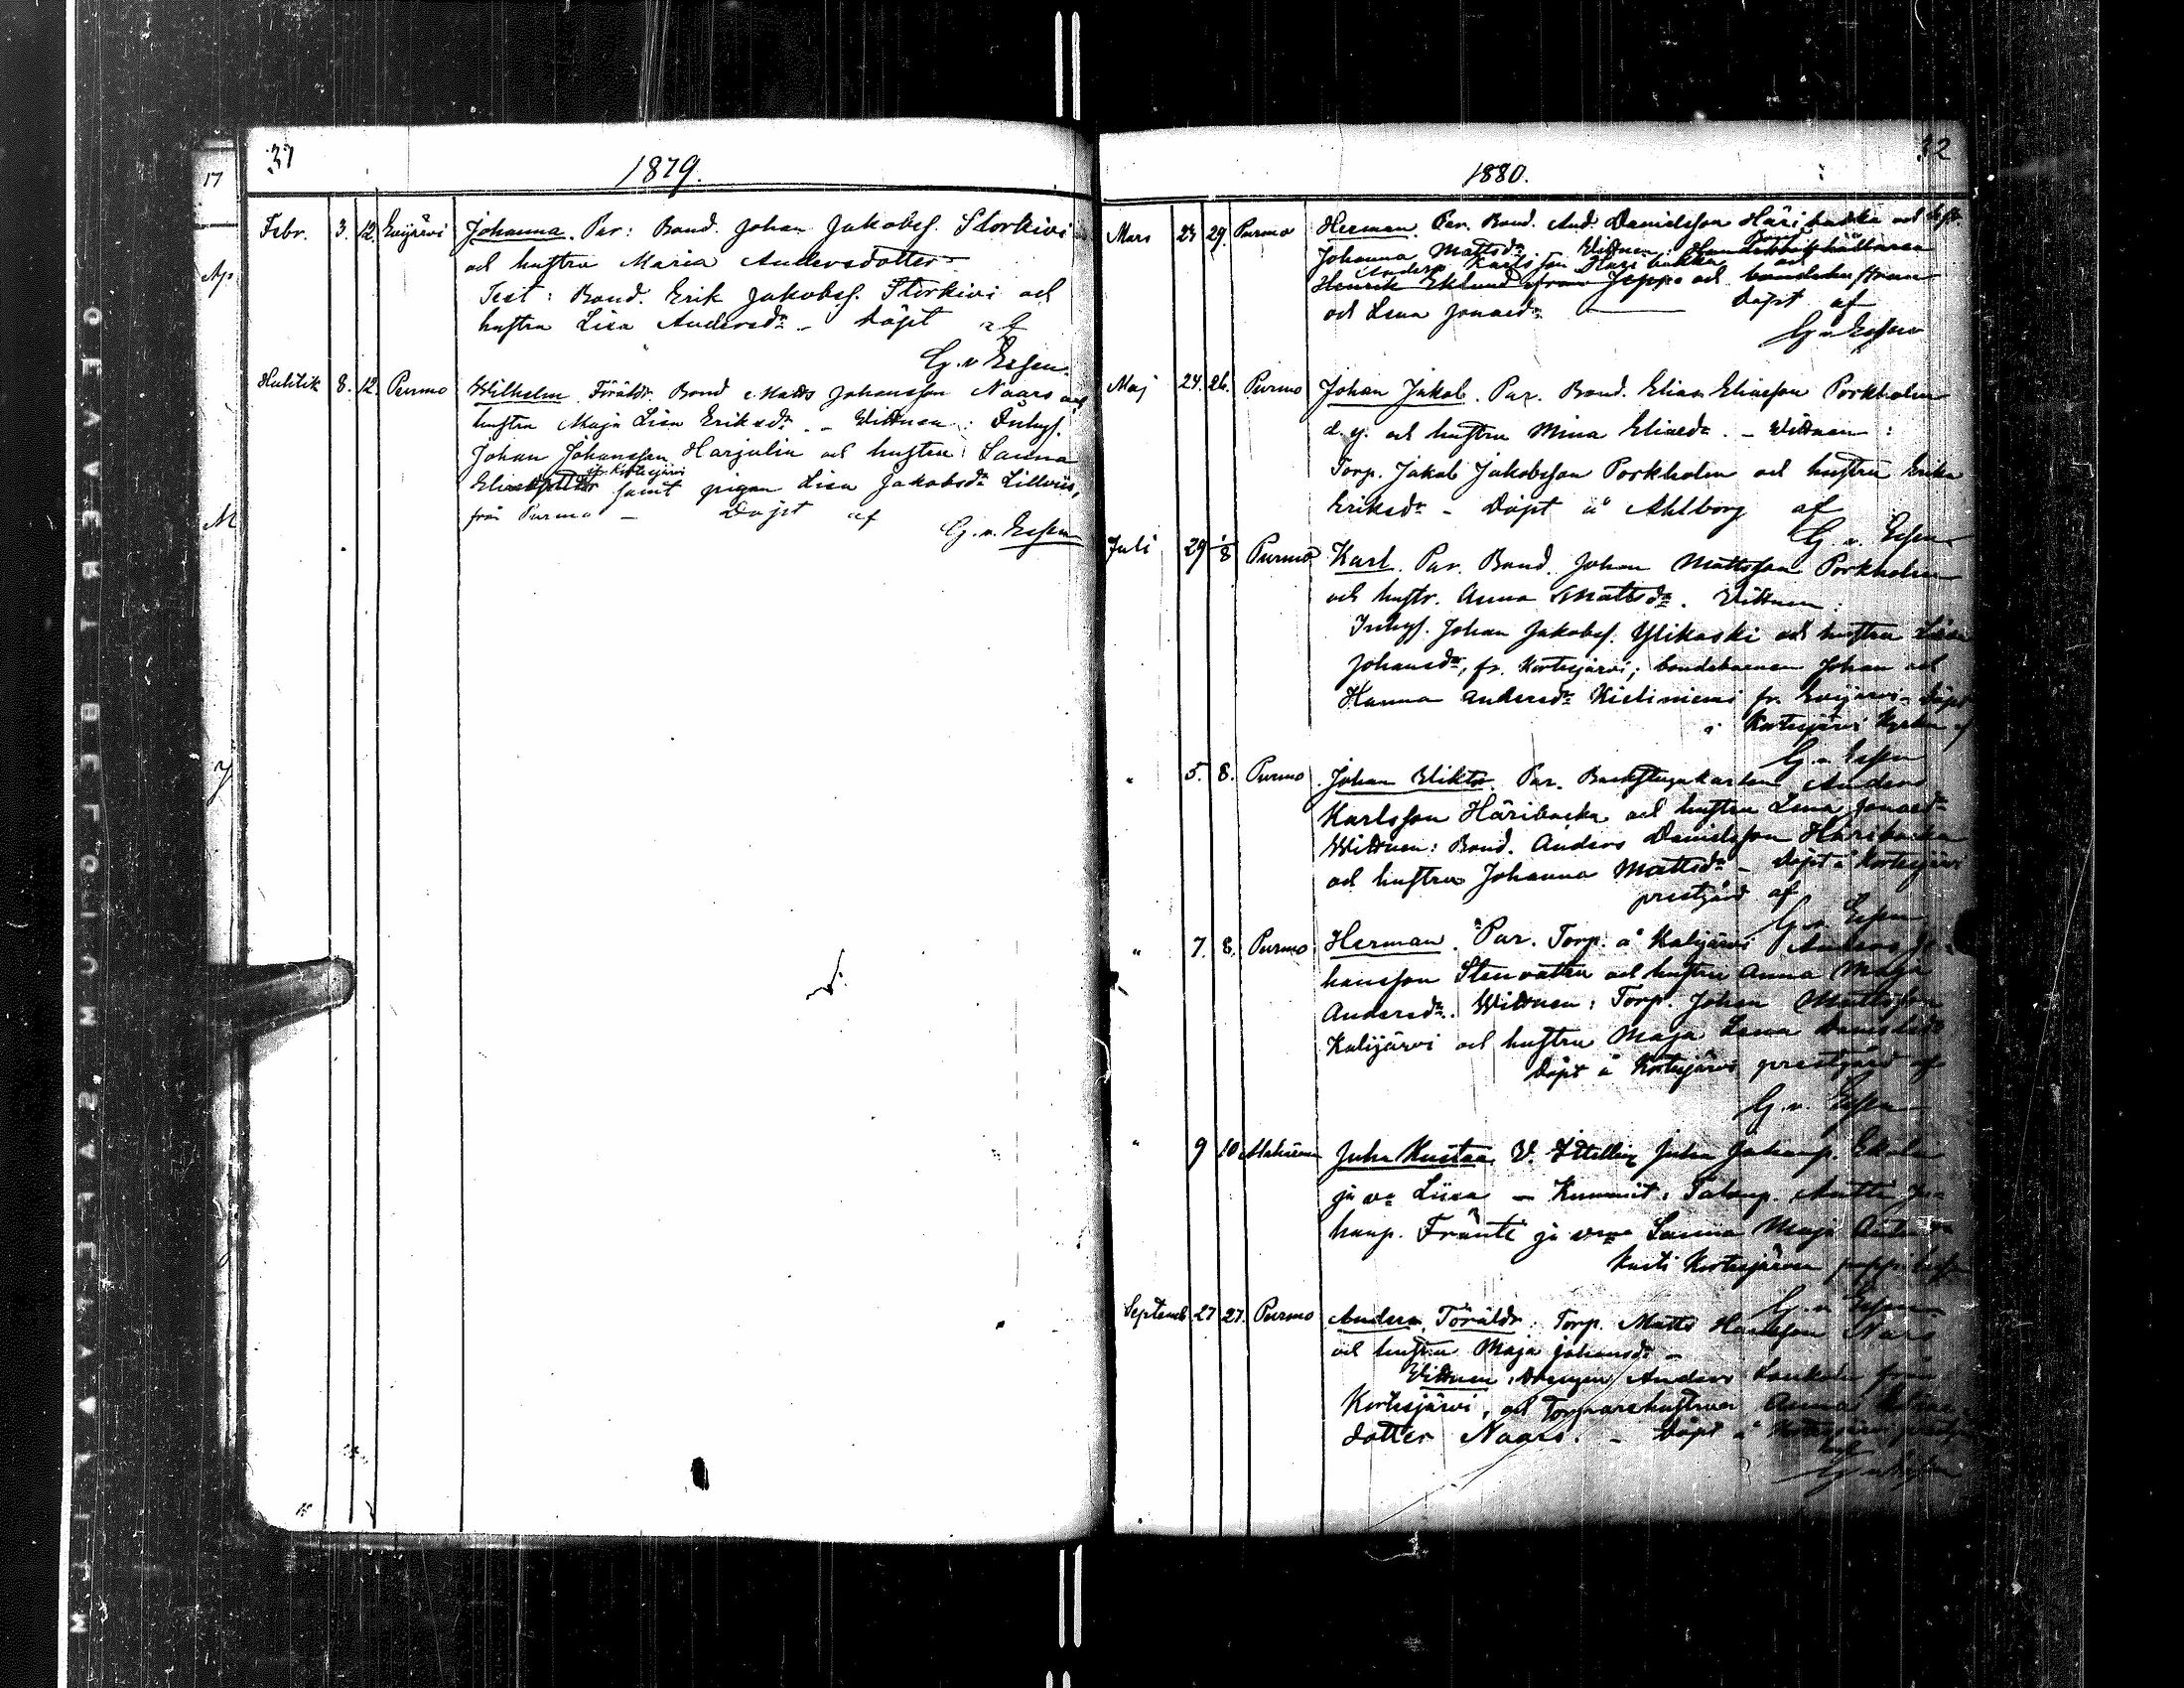 31
1879.
Febr. 3. 12. Evijärvi Johanna. Par: Bond. Johan Jakobss. Storkivi
och hustru Maria Andersdotter
Test: Bond. Erik Jakobss. Storkivi och
hustru Lisa Andersdr. – Döpt af
G. v Essen.
8. 12 Purmo Wilhelm. Föräldr. Bond Matts Johansson Naars och
hustru Maja Lisa Eriksdr. – Vittnen: Inhys.
Johan Johansson Harjulin och hustru Sanna
fr. Kortesjärvi
samt pigan Lisa Jakobsdr Lillviis,
från Purmo – Döpt af
G. v. Essen
32
1880.
Mars 29. Purmo Herman. Par. Bond. And. Danielsson Häribacka och
Johanna Mattsdr. Vittnen:
Anders Karlsson Häribacka och
Henrik Eklund från Jeppo och bondehustrun
och Lena Jonasdr. Döpt af
G. v Essen
Maj 24. 26. Purmo Johan Jakob. Par. Bond. Elias Eliasson Porkholm
d. y. och hustru Mina Eliasdr. – Vittnen:
Torp. Jakob Jakobsson Porkholm och hustru Erika
Eriksdr – Döpt å Ahlborg af
G. v. Essen
Juli 29 1/8 Purmo Karl. Par. Bond. Johan Mattsson Porkholm
och hustr. Anna Mattsdr. Vittnen:
Inhys. Johan Jakobss. Ylikoski och hustru Lisa
Johansdr, fr. Kortesjärvi; bondebarnen Johan och
Hanna Andersdr Kieliniemi fr. Evijärvi – Döpt
i Kortesjärvi Kyrka af
G. v Essen
" 5. 8. Purmo Johan Viktor. Par. Backstugukarlen Anders
Karlsson Häribacka och hustru Lena Jonasdr
Vittnen: Bond. Anders Danielsson Häribacka
och hustru Johanna Mattsdr – Döpt å Kortesjärvi
prestgård af
G. v Essen
" 7. 8. Purmo Herman. Par. Torp. å Kalijärvi Anders Jo-
hansson Stenvatten och hustru Anna Maja
Andersdr. Vittnen: Torp. Johan Mattsson
Kalijärvi och hustru Maja Lena Danielsdr
Döpt å Kortesjärvi prestgård af
G. v. Essen
" 9 10 Juha Kustaa. V. Itsellin. Juha Juhanp. Ekola
ja vo Liisa – Kummit: Talonp. Antti Ju-
hanp. Fränti ja vmo Sanna Maja
Kasti Kortesjärven
G. v Essen
Septemb 27 27. Purmo Anders. Föräldr. Torp. Matts Naars
och hustru Maja Johansdr –
Vittnen: Drengen Anders från
Kortesjärvi, och Torparehustrun Anna
dotter Naars. – Döpt å Kortesjärvi
af
G. v Essen